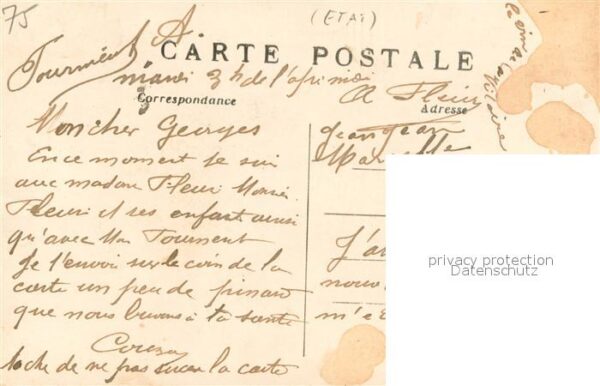 75
(ETAT)
Tourment A.
CARTE POSTALE
mardi 3h de l'après midi
Correspondance
A Fleury
Adresse
Mon cher Georges
En ce moment je sui
avec madame Fleuri Monsi
Fleuri et ses enfant ainsi
qu'avec Mon Tourment
Je t'envoi sur le coin de la
carte un peu de pinard
que nous buvons à ta santé
de ne pas sucer la carte
Marcelle
J'ai
nous
m'e
privacy protection
Datenschutz